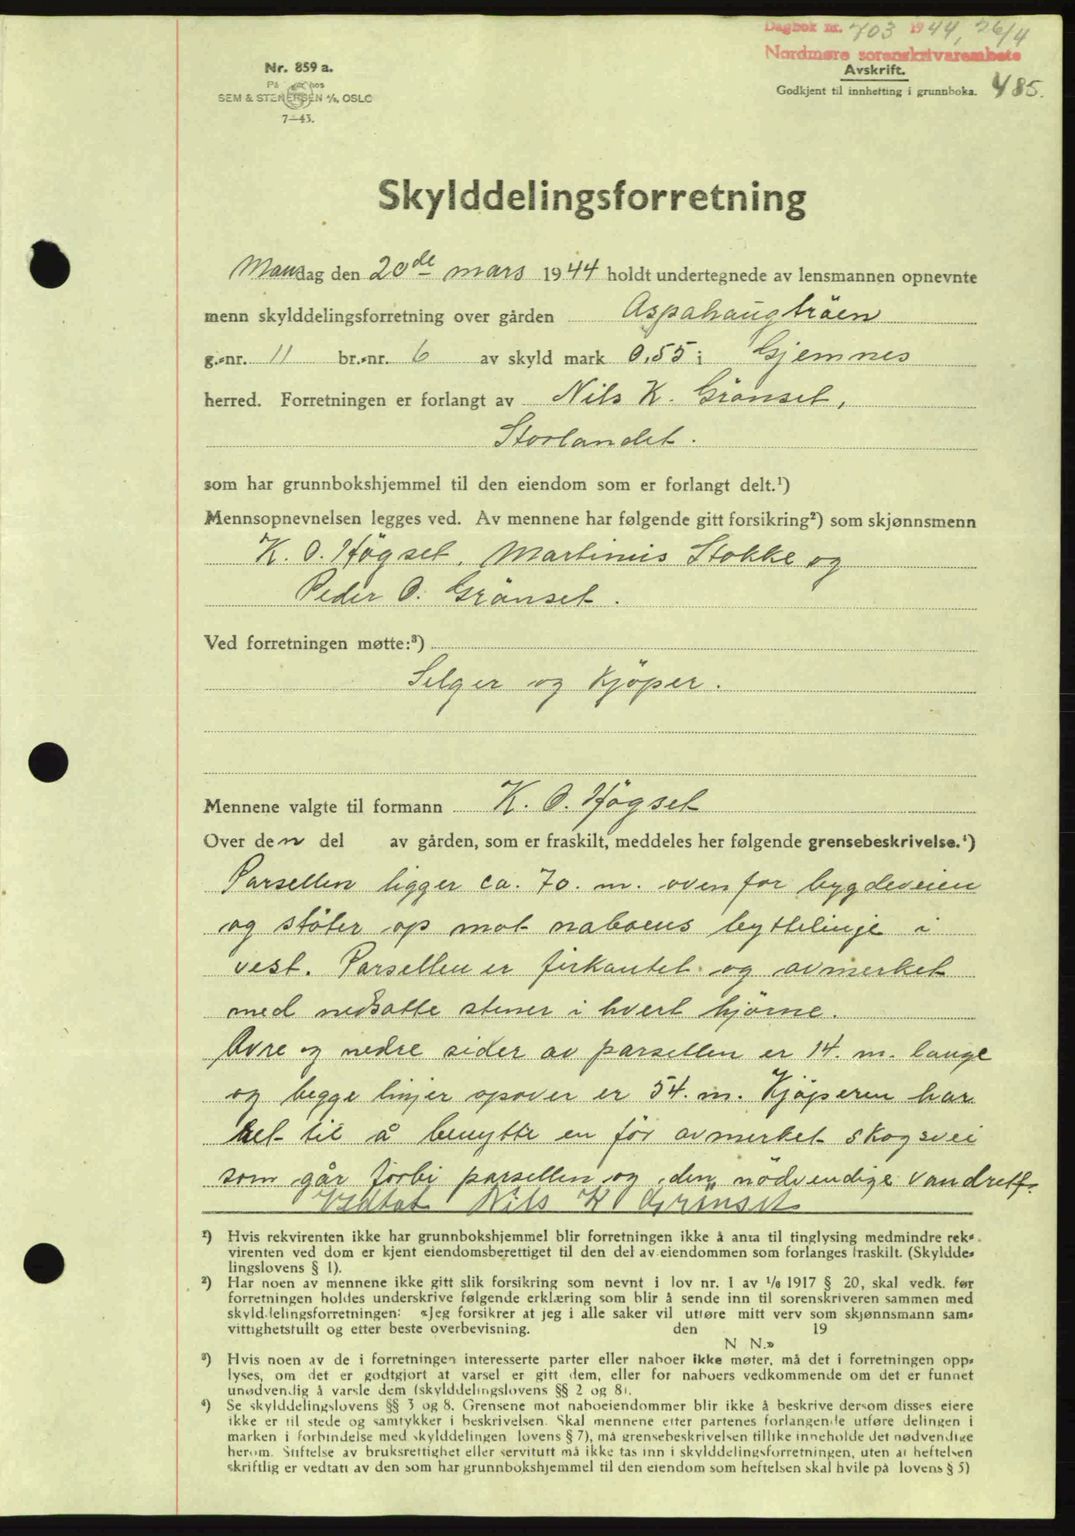 Dagbok nr. 703 1944, 26/4
Nordmøre sorenskrivarembete
Nr. 859 a.
SEM & STENERSEN A/S, OSLO
7—43.
Avskrift.
Godkjent til innhefting i grunnboka. 485.
Skylddelingsforretning
Mandag den 20de mars 1944 holdt undertegnede av lensmannen opnevnte
menn skylddelingsforretning over gården Aspahaugtrøen
g.-nr. 11 br.-nr. 6 av skyld mark 0,55 i Gjemnes
herred. Forretningen er forlangt av Nils K. Grönset,
Storlandet.
som har grunnbokshjemmel til den eiendom som er forlangt delt.¹)
Mennsopnevnelsen legges ved. Av mennene har følgende gitt forsikring²) som skjønnsmenn
K. O. Högset, Martinus Stokke og
Peder O. Grönset.
Ved forretningen møtte:³)
Selger og Kjöper.
Mennene valgte til formann K. O. Högset
Over den del av gården, som er fraskilt, meddeles her følgende grensebeskrivelse.⁴)
Parsellen ligger ca. 70. m. ovenfor bygdeveien
og stöter op mot naboens byttelinje i
vest. Parsellen er firkantet og avmerket
med nedsatte stener i hvert hjörne.
Övre og nedre sider av parsellen er 14. m. lange
og begge linjer opover er 54. m. Kjöperen har
ret til å benytte en för avmerket skogsvei
som går forbi parsellen og den nödvendige vandrett.
Vedtat Nils K Grönset
¹) Hvis rekvirenten ikke har grunnbokshjemmel blir forretningen ikke å anta til tinglysing medmindre rek-
virenten ved dom er kjent eiendomsberettiget til den del av eiendommen som forlanges fraskilt. (Skyldde-
lingslovens § 1).
²) Har noen av mennene ikke gitt slik forsikring som nevnt i lov nr. 1 av 1/6 1917 § 20, skal vedk. før
forretningen holdes underskrive følgende erklæring som blir å sende inn til sorenskriveren sammen med
skylddelingsforretningen: «Jeg forsikrer at jeg i alle saker vil utføre mitt verv som skjønnsmann sam-
vittighetsfullt og etter beste overbevisning. den 19
N N.»
³) Hvis noen av de i forretningen interesserte parter eller naboer ikke møter, må det i forretningen opp-
lyses, om det er godtgjort at varsel er gitt dem, eller for naboers vedkommende om det er funnet
unødvendig å varsle dem (skylddelingslovens §§ 2 og 8).
⁴) Se skylddelingslovens §§ 3 og 8. Grensene mot naboeiendommer blir ikke å beskrive dersom disses eiere
ikke er til stede og samtykker i beskrivelsen. Skal mennene etter partenes forlangende utføre delingen i
marken i forbindelse med skylddelingen (lovens § 7), må grensebeskrivelsen tillike inneholde det nødvendige
herom. Stiftelse av bruksrettighet eller servitutt må ikke tas inn i skylddelingsforretningen, uten at heftelsen
skriftlig er vedtatt av den som har grunnbokshjemmel til den eiendom som heftelsen skal hvile på (lovens § 5)